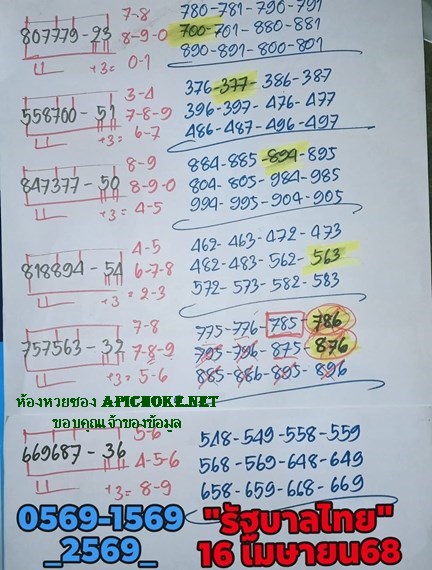 7-8
807779-93
8-9-0
+3= 0-1
780-781-790-791
700-701-880-881
890-891-800-801
3-4
558700-51
7-8-9
+3= 6-7
376-377-386-387
396-397-476-477
486-487-496-497
8-9
847377-50
8-9-0
+3= 4-5
884-885-894-895
804-805-984-985
994-995-904-905
4-5
818894-54
6-7-8
+3= 2-3
462-463-472-473
482-483-562-563
572-573-582-583
7-8
757563-32
7-8-9
+3= 5-6
775-776-785-786
795-796-875-876
885-886-895-896
ห้องหวยซอง APICHOKE.NET
ขอบคุณเจ้าของข้อมูล
5-6
669687-36
4-5-6
+3= 8-9
548-549-558-559
568-569-648-649
658-659-668-669
0569-1569
_2569_
"รัฐบาลไทย"
16 เมษายน68